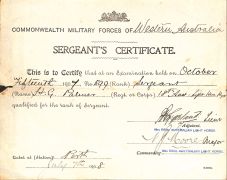 COMMONWEALTH MILITARY FORCES OF Western Australia
SERGEANT'S CERTIFICATE.
This is to Certify that at an Examination held on October
Fifteenth 1907 No 899 (Rank) Sergeant
(Name) H. G. Palmer (Regt or Corps) 18th
qualified for the rank of Sergeant.
Lieut
18th (WEST. AUSTRALIAN) LIGHT HORSE
Moore Major
Commanding
Dated at (Station) Perth
July 7th 1908